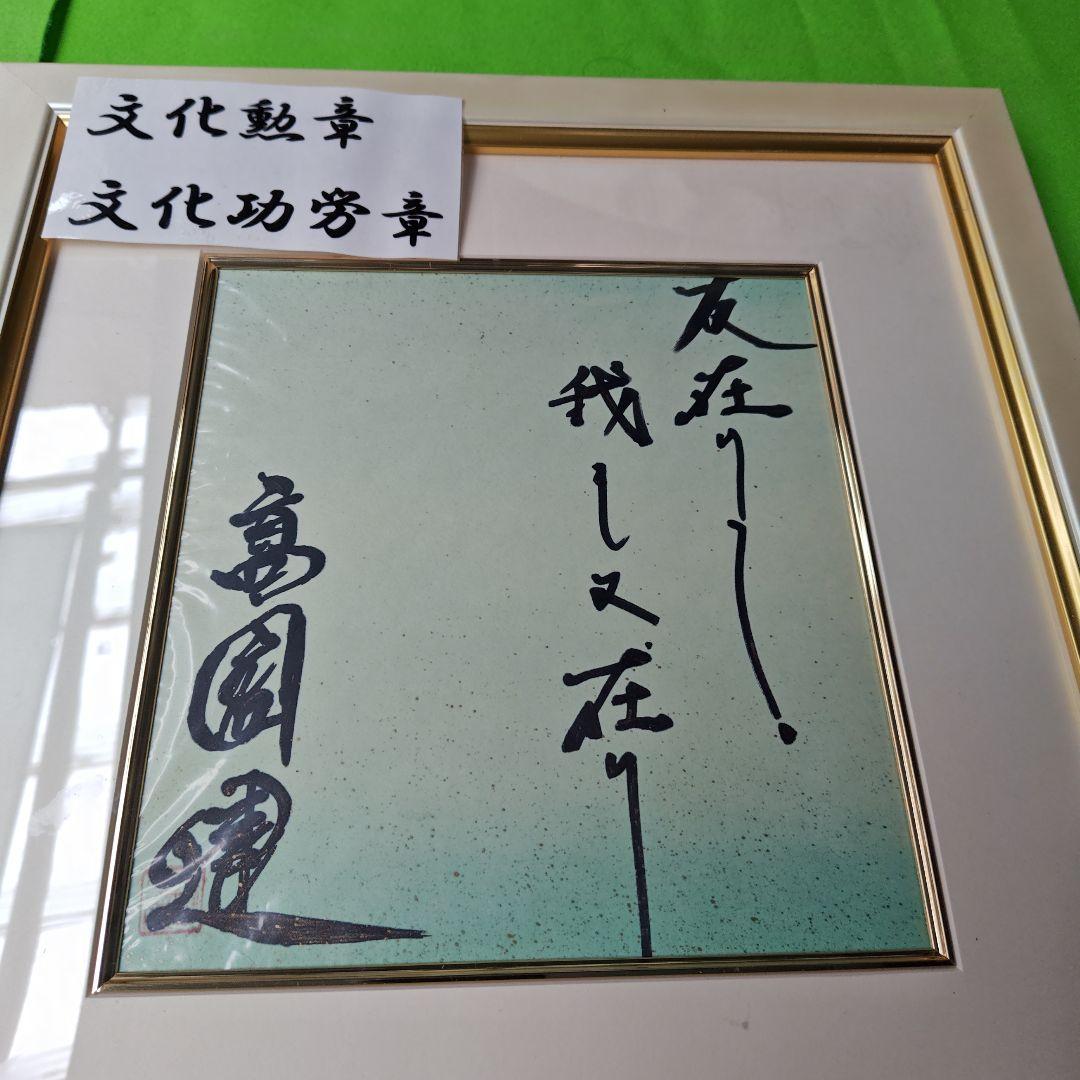 文化勲章
文化功労章
友在りし
我し又在り
高倉健